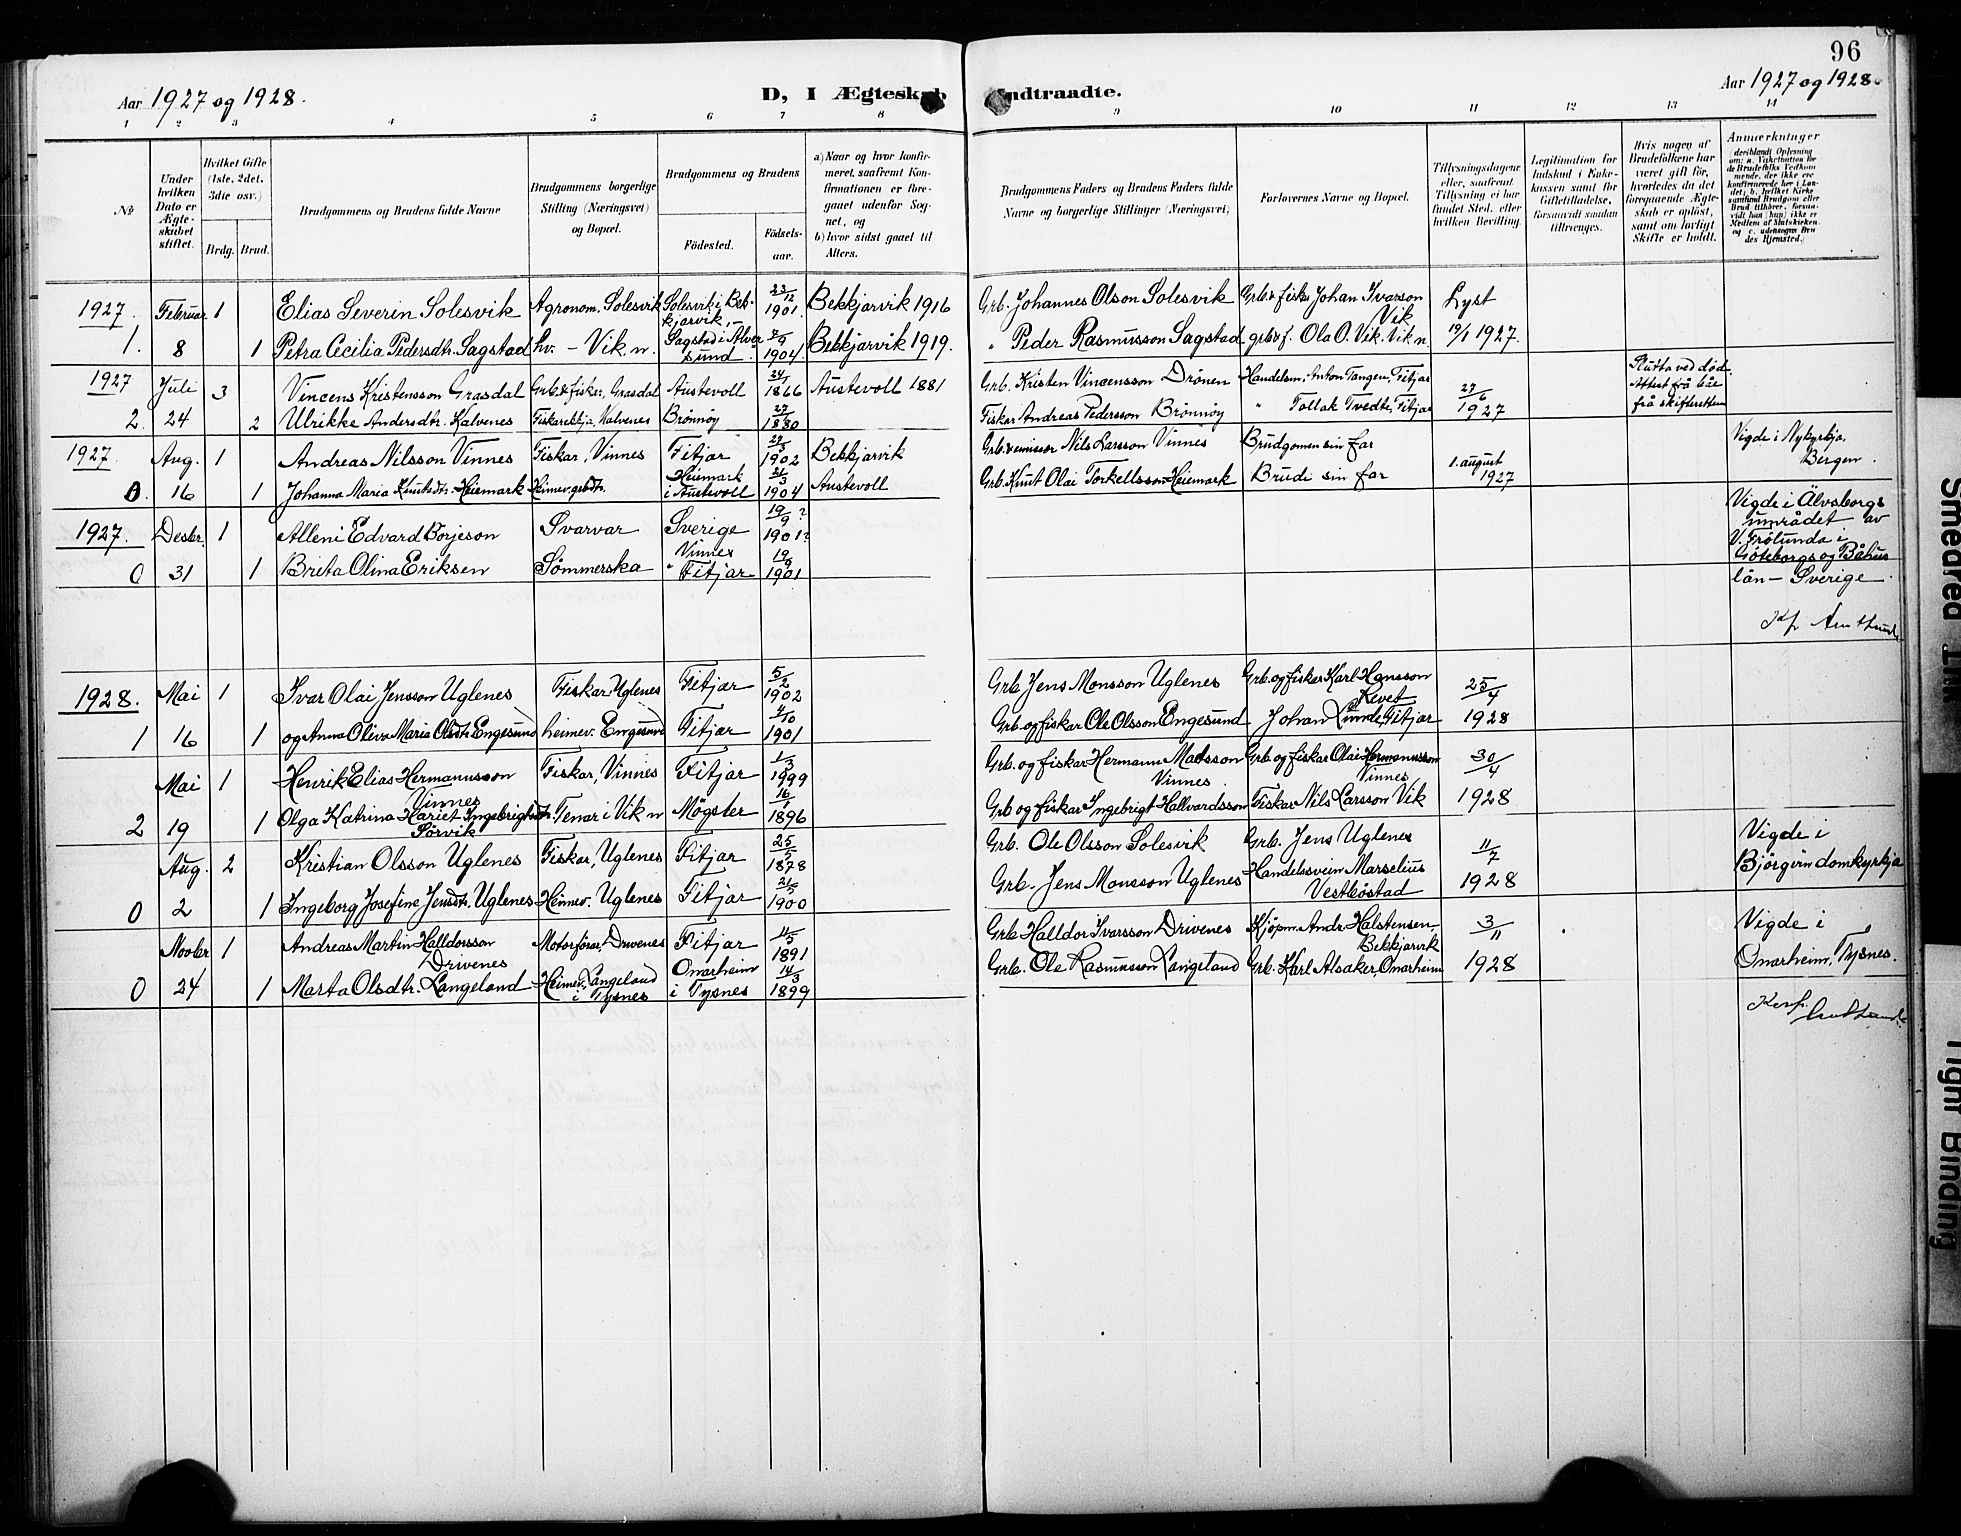 96
Aar 1927 og 1928.
D, I Ægteskab Indtraadte.
Aar 1927 og 1928.
1 2 3 4 5 6 7 8 9 10 11 12 13 14
No
Under hvilken Dato er Ægteskabet stiftet.
Hvilket Gifte (1ste, 2det, 3die osv.)
Brdg. Brud.
Brudgommens og Brudens fulde Navne
Brudgommens borgerlige Stilling (Næringsvei) og Bopæl.
Brudgommens og Brudens
Fødested.
Fødselsaar.
a) Naar og hvor konfirmeret, saafremt Konfirmationen er foregaaet udenfor Sognet, og
b) hvor sidst gaaet til Alters.
Brudgommens Faders og Brudens Faders fulde Navne og borgerlige Stillinger (Næringsvei)
Forlovernes Navne og Bopæl.
Tillysningsdagene eller, saafremt Tillysning ei har fundet Sted, efter hvilken Bevilling.
Legitimation for Indskud i Enkekassen samt for Giftetilladelse, forsaavidt saadan tiltrænges.
Hvis nogen af Brudefolkene har været gift før, hvorledes da det foregaaende Ægteskab er opløst, samt om lovligt Skifte er holdt.
Anmærkninger
1927. Februar 1 Elias Severin Solesvik Agronom. Solesvik Solesvik i Bekkjarvik 23/12 1901. Bekkjarvik 1916 Grb. Johannes Olson Solesvik Grb. & fisk. Johan Ivarson Vik Lyst
1. 8 1 Petra Cecilia Pedersdtr. Sagstad hv. - Vik. n. Sagstad i Alversund 1904 Bekkjarvik 1919. " Peder Rasmusson Sagstad grb & f. Ola O. Vik. Vik n. 19/1 1927.
1927 Juli 3 Vincens Kristensson Grasdal Grb & fisker, Grasdal Austevoll 24/1 1866 Austevoll 1881 Grb. Kristen Vincensson Drönen Handelsm. Anton Tangen, Fitjar 27/6 1927 Slutta ved død Attest frå skifteretten
2. 24 2 Ulrikke Andersdtr. Kalvenes Fiskarekkja, Kalvenes Brønnøy 1880 Fisker Andreas Pedersson Brönnöy " Tollak Tvedte, Fitjar
1927. Aug. 1 Andreas Nilsson Vinnes Fiskar, Vinnes Fitjar 1902 Bekkjarvik Grb & Nils Larsson Vinnes Brudgomen sin far 1. august 1927 Vigde i Nykyrkja, Bergen.
0. 16 1 Johanna Maria Knutsdtr. Heiemark Heimev. grbdtr. Heiemark i Austevoll 1904 Austevoll Grb. Knut Olai Torkellsson Heiemark Brudi sin far
1927. Desbr. 1 Alleni Edvard Borjeson Svarvar Sverige 19/9? 1901? Vigde i Älvsborgs området av V. Frölunda i Göteborgs og Båhus län - Sverige.
0 31 1 Brita Olina Eriksen Sömmerska Vinnes " Fitjar 19/9 1901
1928. Mai 1 Ivar Olai Jensson Uglenes Fiskar, Uglenes Fitjar 5/2 1902 Grb Jens Monsson Uglenes Grb. og fisker Karl Hansson 25/4 1928
1 16 1 og Anna Oliva Maria Olsdtr. Engesund heimev. Engesund Fitjar 4/10 1901 Grb. og fiskar Ole Olsson Engesund Johan Lunde, Fitjar
Mai 1 Henrik Elias Hermannsson Vinnes Fiskar, Vinnes Fitjar 1/3 1899 Grb. og fiskar Hermann Madsson Vinnes Grb. og fiskar Olai Hermannsson Vinnes 30/4 1928
2 19 1 Olga Katrina Hariet Ingebrigtsdtr. Sørvik Tenar i Vik n Mögster 16/1 1896 Grb og fiskar Ingebrigt Hallvardsson Fiskar Nils Larsson Vik
Aug. 2 Kristian Olsson Uglenes Fiskar, Uglenes Fitjar 1878 Grb. Ole Olsson Solesvik Grb. Jens Uglenes 11/7 1928 Vigde i Bjørgvin domkyrkja
0 2 1 Ingeborg Josefine Jensdtr. Uglenes Heimev. Uglenes Fitjar 1900 Grb. Jens Monsson Uglenes Handelssvein Marselius Vestbøstad
Novbr 1 Andreas Martin Halldorsson Drivenes Motorförar, Drivenes Fitjar 11/5 1891 Grb Halldor Ivarsson Drivenes Kjöpm. Andr. Halstensen Bekkjarvik 3/11 1928 Vigde i Onarheim, Tysnes.
0 24 1 Marta Olsdtr. Langeland Heimev. Langeland i Tysnes Onarheim i Tysnes 14/3 1899 Grb. Ole Rasmussen Langeland Grb. Karl Alsaker, Onarheim
Tight Binding